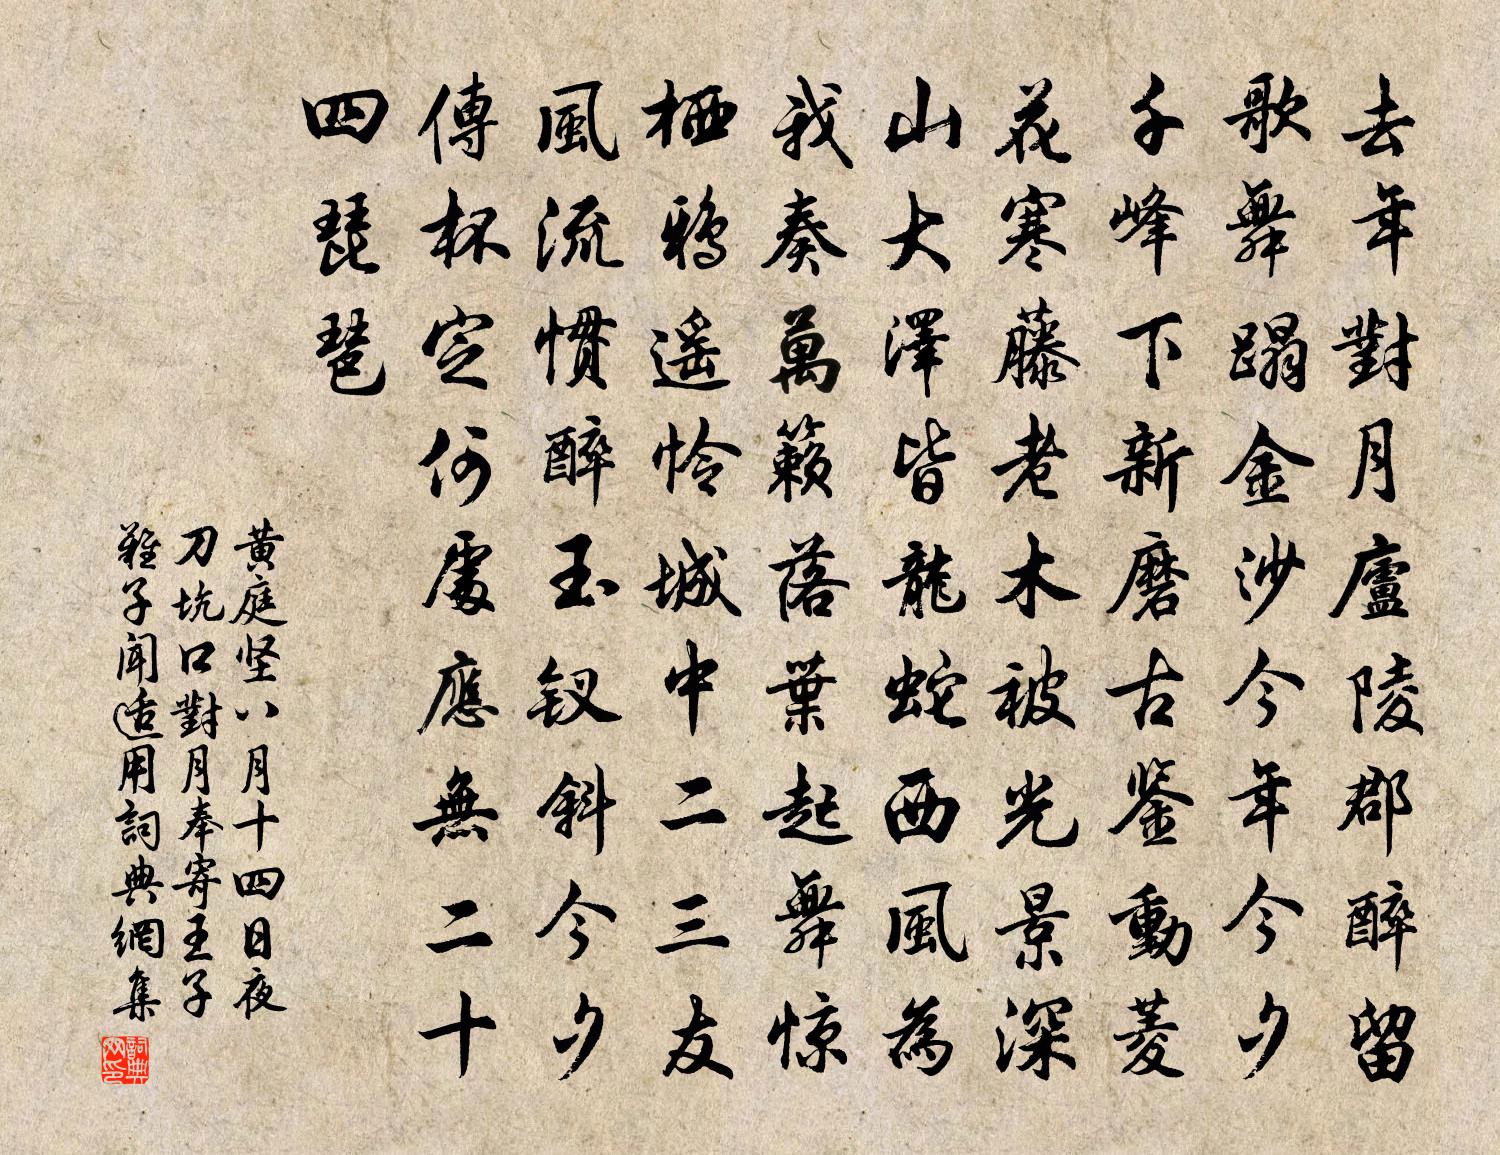 去年對月廬陵郡醉留
歌舞蹋金沙今年今夕
千峰下新磨古鉴動菱
花寒藤老木被光景深
山大澤皆龍蛇西風為
我奏萬籟落葉起舞惊
栖鴉遥怜城中二三友
風流慣醉玉釵斜今夕
傳杯定何處應無二十
四琵琶
黄庭坚八月十四日夜
刀坑口對月奉寄王子
難子聞适用詞典網集
詞典
网印